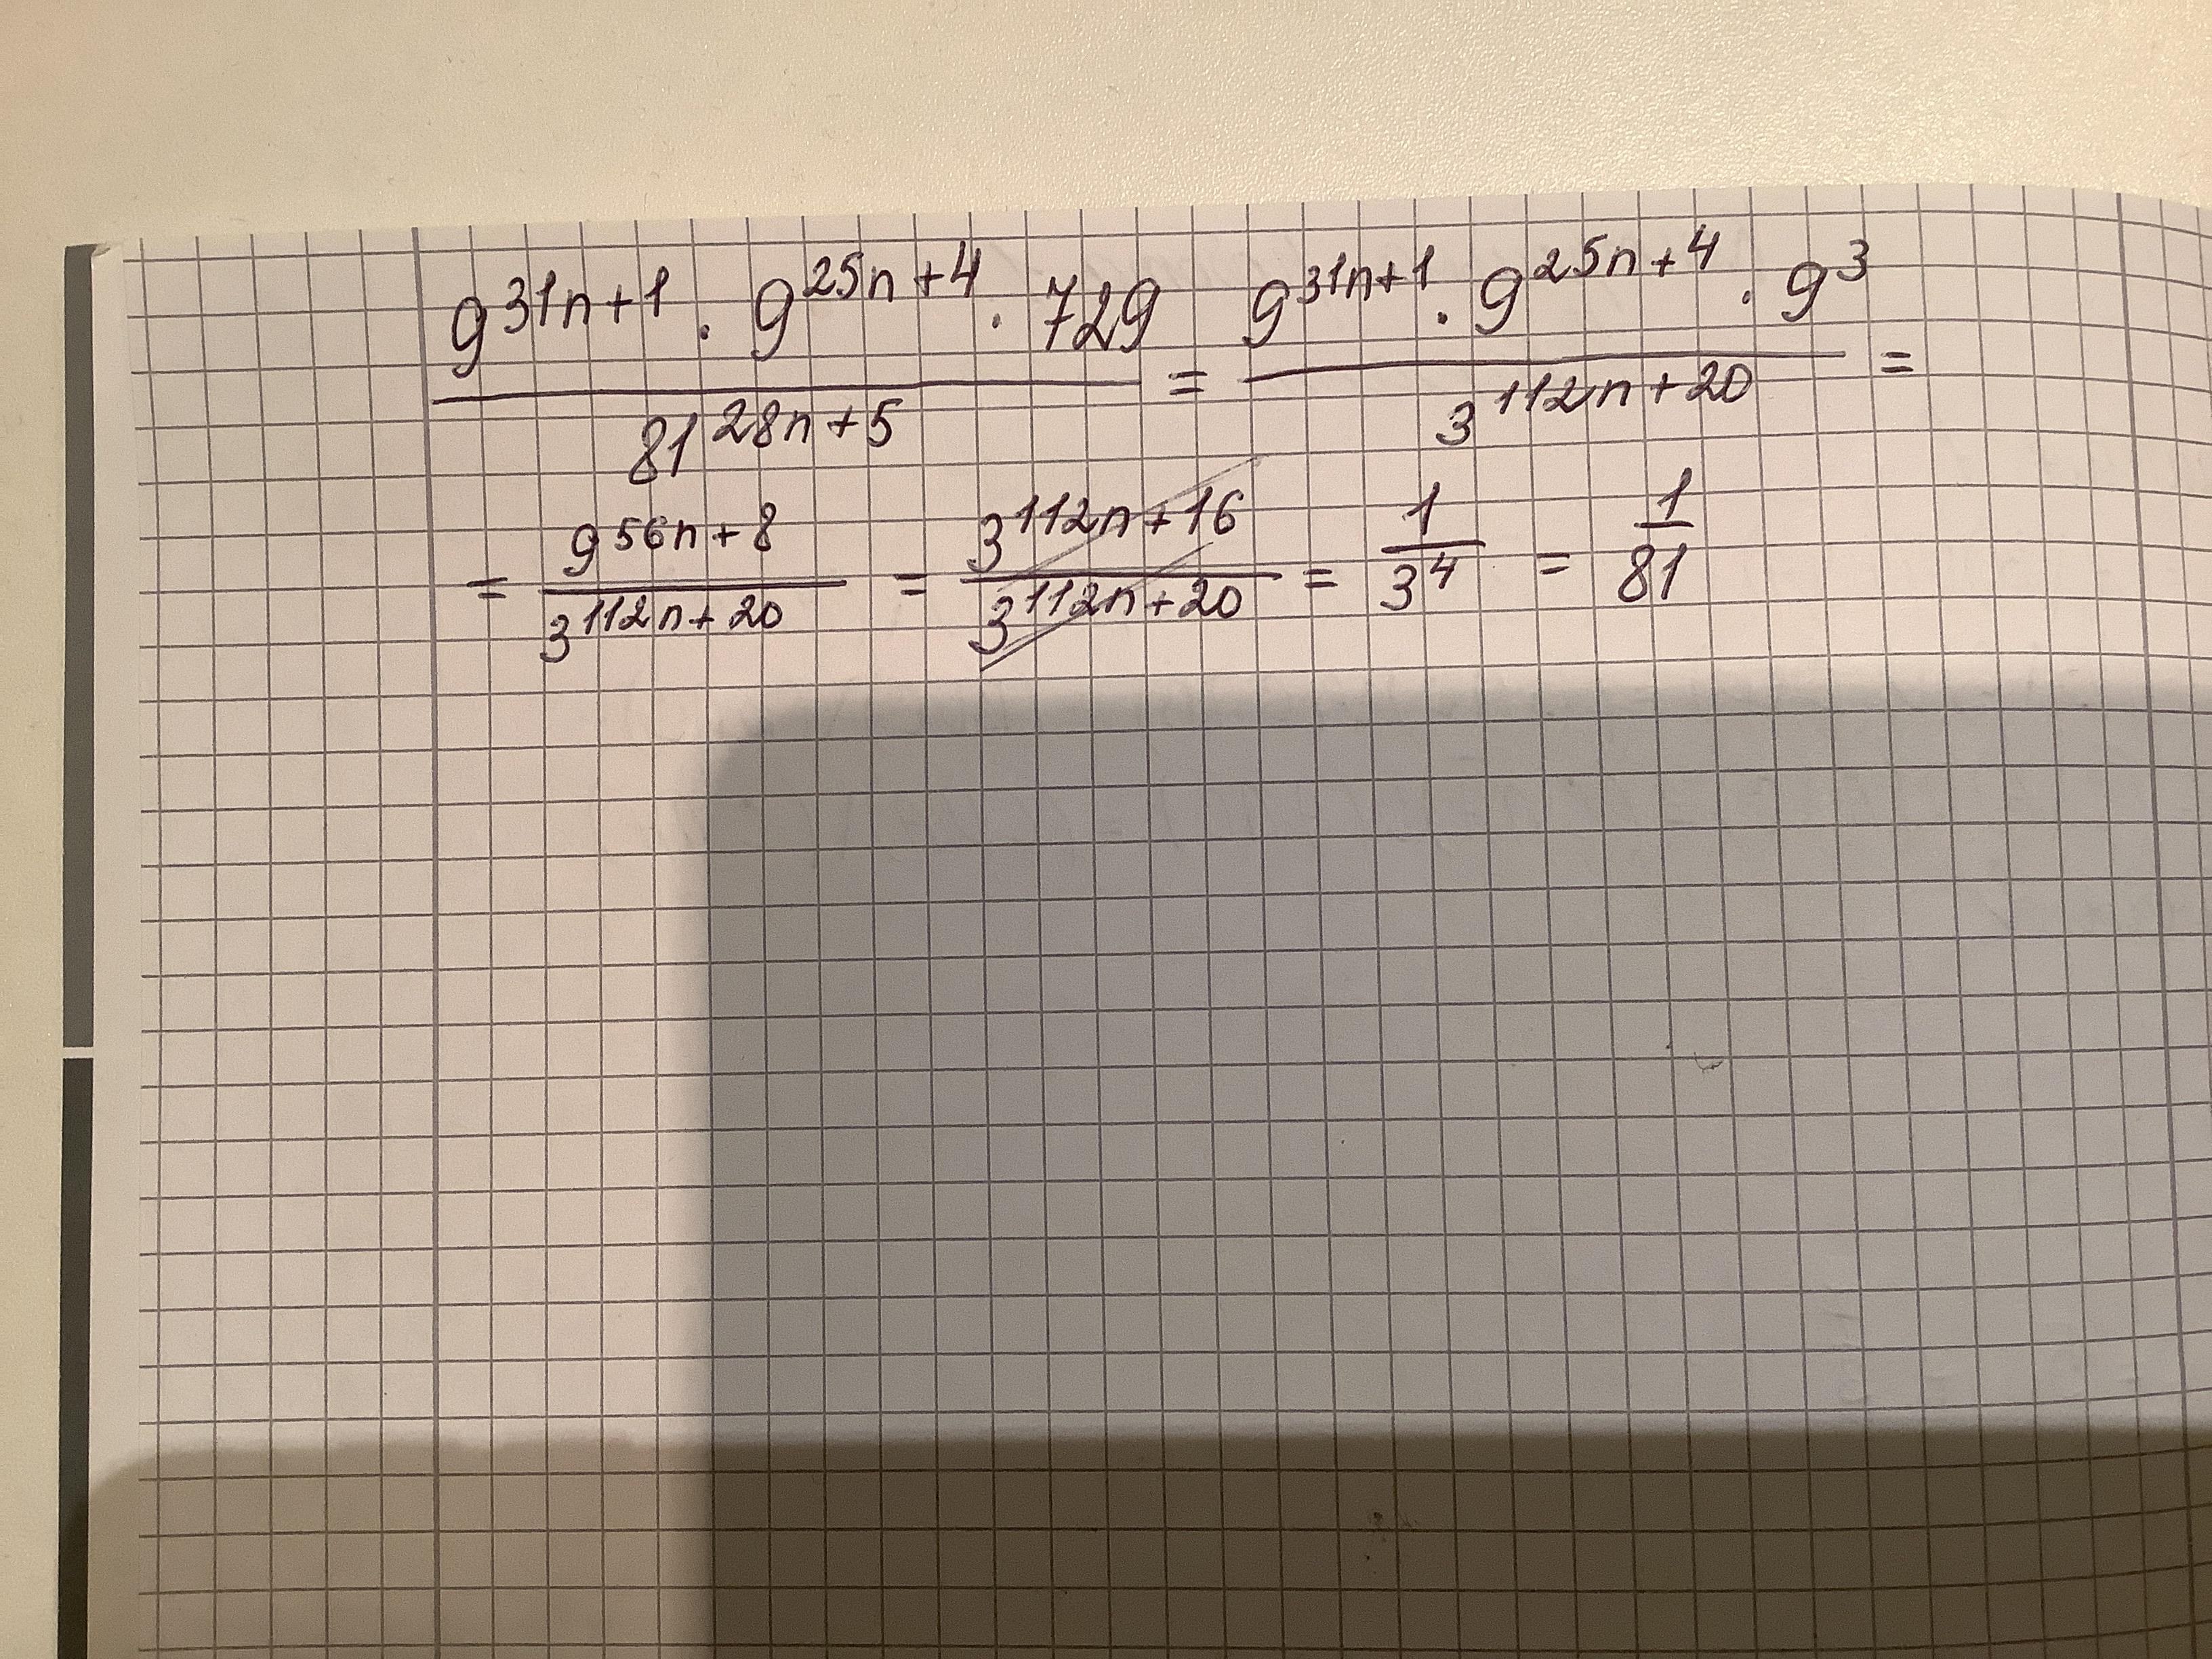 9^{31n+1} · 9^{25n+4} · 729 / 81^{28n+5} = 9^{31n+1} · 9^{25n+4} · 9^3 / 3^{112n+20} =
= 9^{56n+8} / 3^{112n+20} = 3^{112n+16} / 3^{112n+20} = 1 / 3^4 = 1 / 81